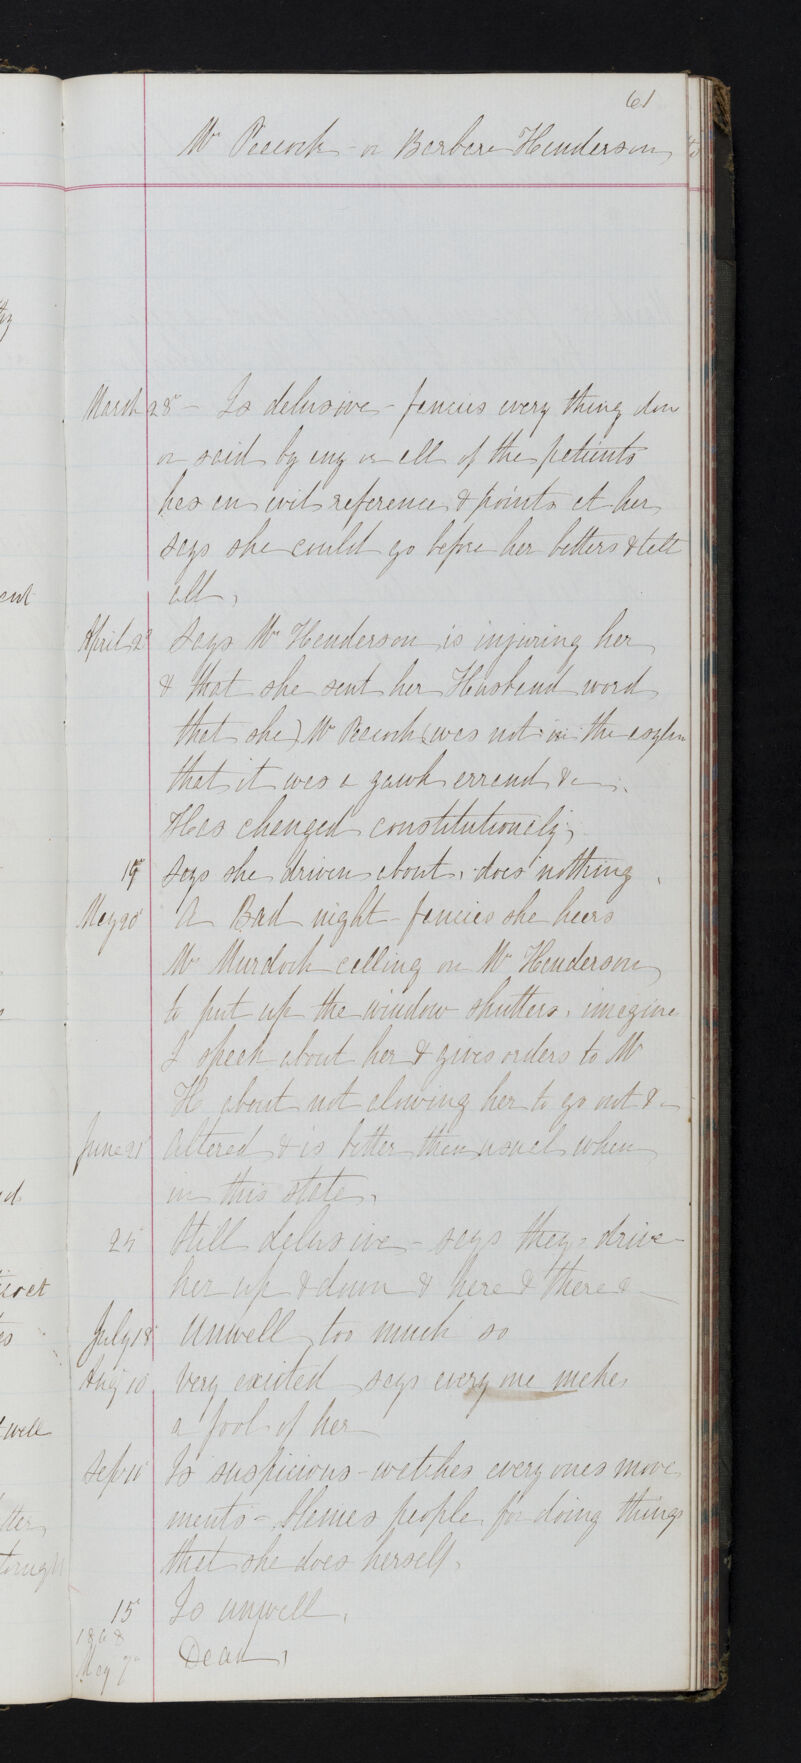 61
Mrs Pecock - or Barbara Henderson
March 28th - Is delusive - fancies every thing don
or said by any or all of the patients
has an evil reference & points at her
says she could go before her betters & tell
all,
April 2d says Mrs Henderson is injuring her
& that she sent her Husband word
that she) Mrs Pecock (was not in the asylum
that it was a gawk errand &c.
Has changed constitutionaly,
19th says she driven about, does nothing,
May 20th A Bad night - fancies she hears
Mr Murdoch calling on Mrs Henderson
to put up the window shutters, imagine
I speak about her & gives orders to Mrs
H about not alowing her to go out &c
June 21st altered & is better than usual when
in this state,
25 Still delusive - says they drive
her up & down & here & there &
July 18 Unwell too much so
Aug 10 Very exited says every one makes
a fool of her
Sep 10 Is suspicious - watches every ones move
ments - blames people for doing things
that she does herself,
15th Is unwell,
1868
May 7th Dead,
ent
well